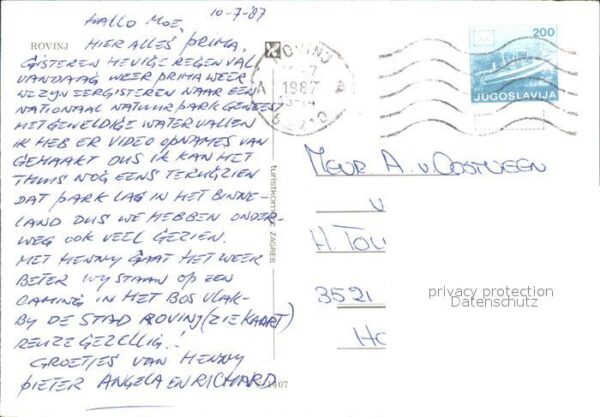 10-7-87
HALLO MOE,
ROVINJ
HIER ALLES PRIMA,
GISTEREN HEVIGE REGENVAL
VANDAAG WEER PRIMA WEER
WE ZYN EERGISTEREN NAAR EEN
NATIONAAL NATUURPARK GEWEEST
MET GEWELDIGE WATERVALLEN
IK HEB ER VIDEO OPNAMES VAN
GEMAAKT DUS IK KAN HET
THUIS NOG EENS TERUGZIEN
DAT PARK LAG IN HET BINNE-
LAND DUS WE HEBBEN ONDER-
WEG OOK VEEL GEZIEN.
MET HENNY GAAT HET WEER
BETER WY STAAN OP EEN
CAMING IN HET BOS VLAK-
BY DE STAD ROVINJ (ZIE KAART)
REUZE GEZELLIG!
GROETJES VAN HENNY
PIETER ANGELA EN RICHARD
1407
turistkomerc ZAGREB
ROVINJ
1987
200
JUGOSLAVIJA
MEVR A. v OOSTVEEN
V
H. TOL
3521
privacy protection
Datenschutz
HO